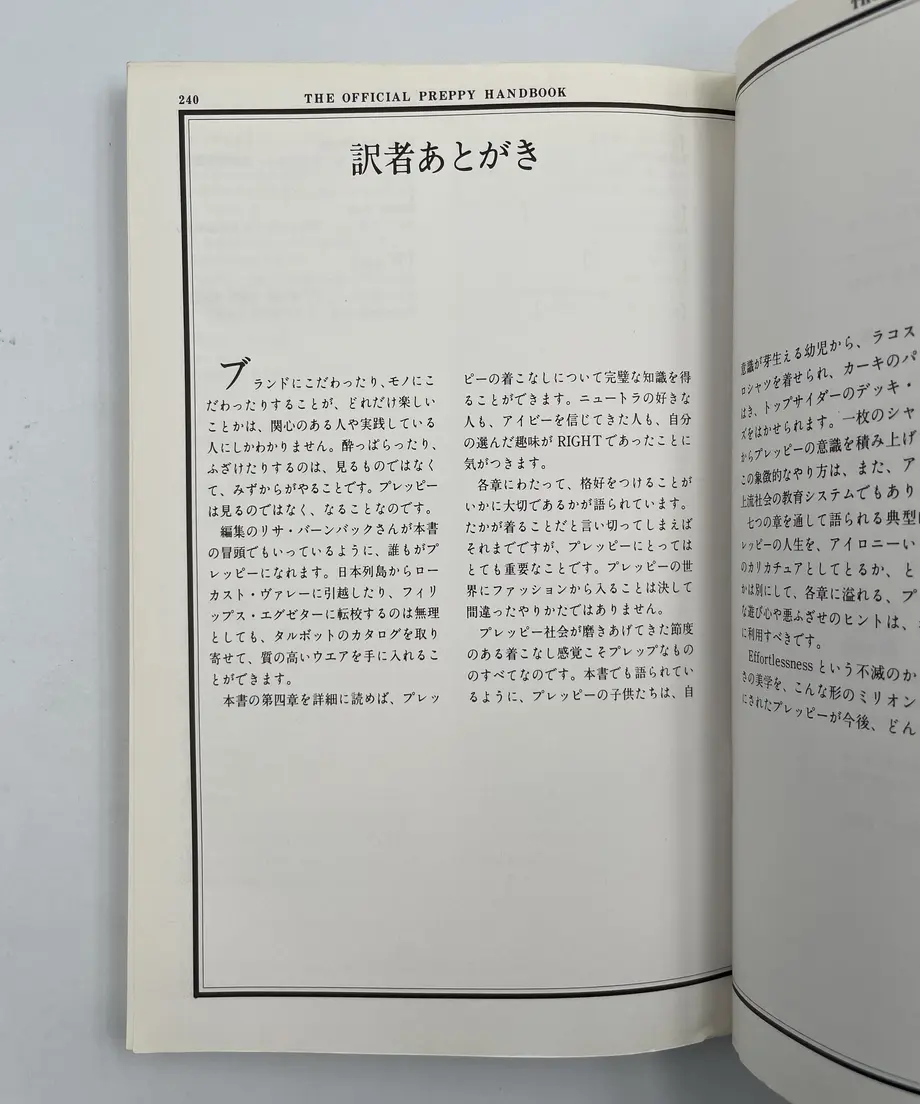 240
THE OFFICIAL PREPPY HANDBOOK
訳者あとがき
ブランドにこだわったり、モノにこ
だわったりすることが、どれだけ楽しい
ことかは、関心のある人や実践している
人にしかわかりません。酔っぱらったり、
ふざけたりするのは、見るものではなく
て、みずからがやることです。プレッピー
は見るのではなく、なることなのです。
編集のリサ・バーンバックさんが本書
の冒頭でもいっているように、誰もがプ
レッピーになれます。日本列島からロー
カスト・ヴァレーに引越したり、フィリ
ップス・エグゼターに転校するのは無理
としても、タルボットのカタログを取り
寄せて、質の高いウエアを手に入れるこ
とができます。
本書の第四章を詳細に読めば、プレッ
ピーの着こなしについて完璧な知識を得
ることができます。ニュートラの好きな
人も、アイビーを信じてきた人も、自分
の選んだ趣味がRIGHTであったことに
気がつきます。
各章にわたって、格好をつけることが
いかに大切であるかが語られています。
たかが着ることだと言い切ってしまえば
それまでですが、プレッピーにとっては
とても重要なことです。プレッピーの世
界にファッションから入ることは決して
間違ったやりかたではありません。
プレッピー社会が磨きあげてきた節度
のある着こなし感覚こそプレップなもの
のすべてなのです。本書でも語られてい
るように、プレッピーの子供たちは、自
意識が芽生える幼児から、ラコス
ロシャツを着せられ、カーキのパ
はき、トップサイダーのデッキ・
ズをはかせられます。一枚のシャ
からプレッピーの意識を積み上げ
この象徴的なやり方は、また、ア
上流社会の教育システムでもあり
七つの章を通して語られる典型
レッピーの人生を、アイロニーい
のカリカチュアとしてとるか、と
かは別にして、各章に溢れる、プ
な遊び心や悪ふざせのヒントは、
に利用すべきです。
Effortlessnessという不滅のか
さの美学を、こんな形のミリオン
にされたプレッピーが今後、どん